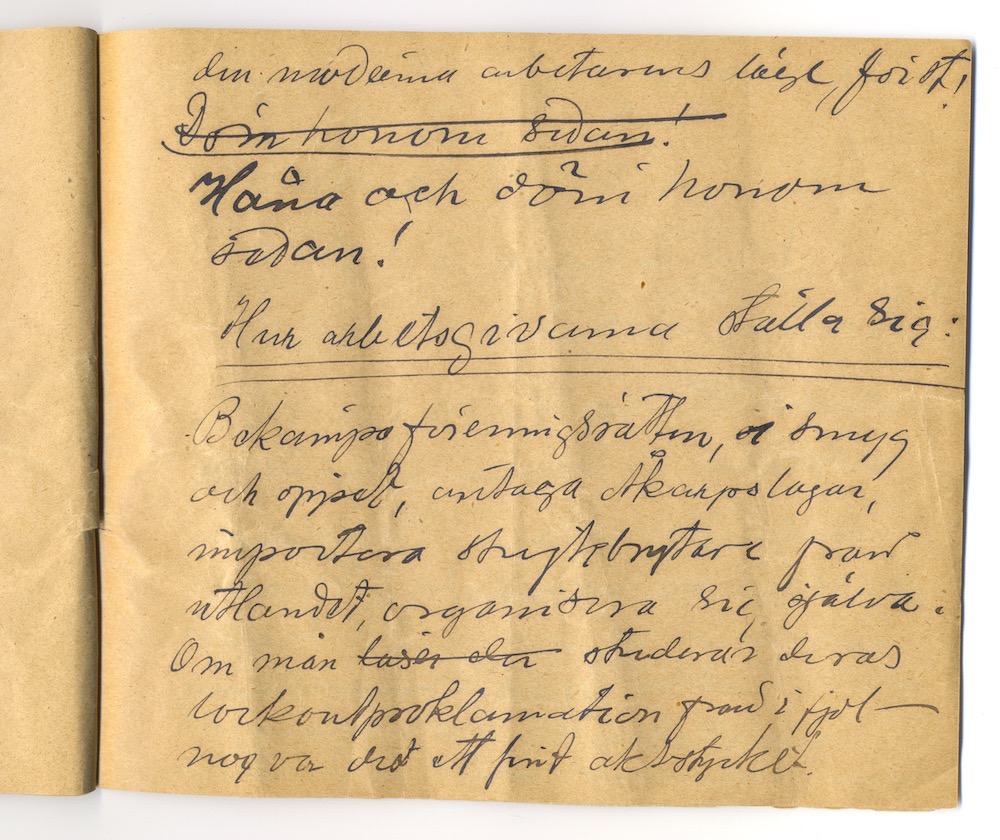 den moderna arbetarens läge, först!
Döm honom sedan!
Håna och döm honom
sedan!
Hur arbetsgivarna ställa sig:
Bekämpa föreningsrätten, i smyg
och öppet, antaga Åkarpslagar,
importera strejkbrytare från
utlandet, organisera sig själva.
Om man läser der studerar deras
lockoutproklamation från i fjol —
nog var det ett fint aktstycke.